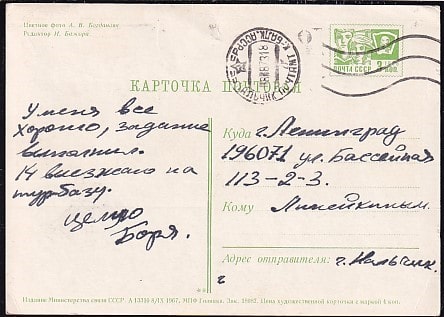 Цветное фото А. В. Богданова
Редактор И. Бажора
ПОЧТА СССР
КАРТОЧКА ПОЧТОВАЯ
У меня все
хорошо, задание
выполнил.
14 выезжаю на
турбазу.
целую
Боря.
Куда г. Ленинград
196071 ул. Бассейная
113-2-3.
Кому Линейкиным.
Адрес отправителя: г. Нальчик.
г
Издание Министерства связи СССР. А 13310 8/IX 1967. МПФ Гознака. Зак. Цена художественной карточки с маркой 4 коп.